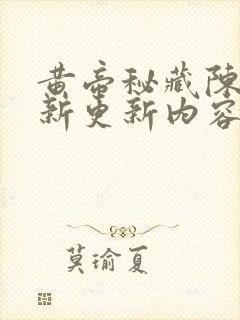 黄帝秘藏陳
新更新内容
莫瑜夏